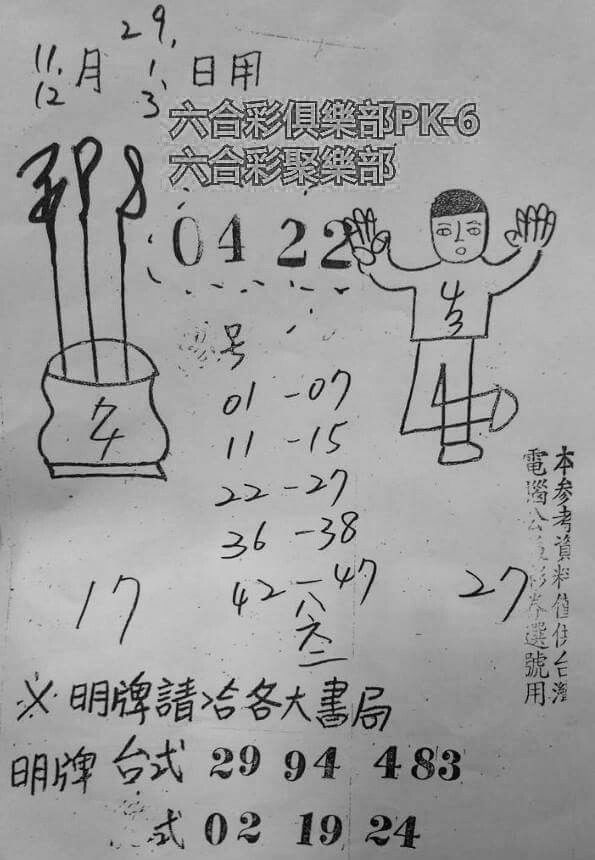 29,
11,月 1, 日用
12 3
六合彩俱樂部PK-6
六合彩聚樂部
04 22
号
01-07
11-15
22-27
36-38
42-47
17
27
八
六
二
本参考資料僅供台灣
電腦公益彩券選號用
※明牌請洽各大書局
明牌 台式 29 94 483
式 02 19 24